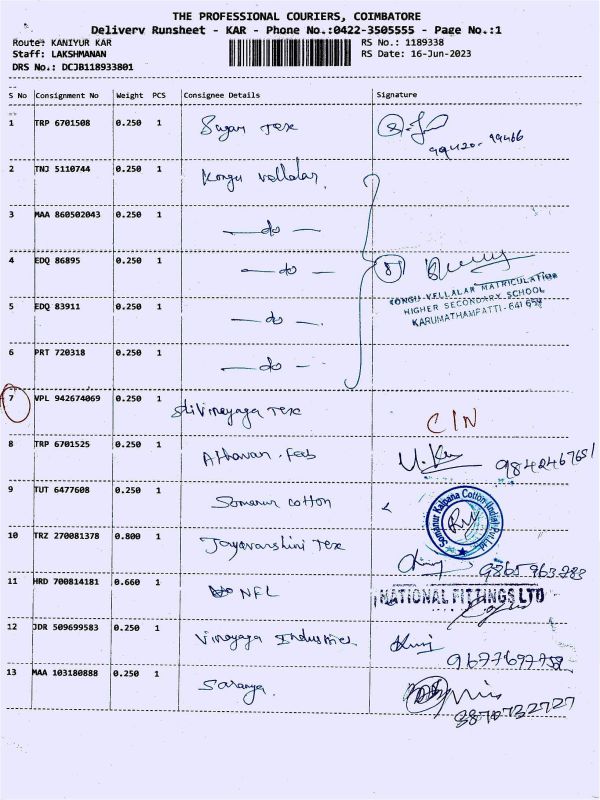 THE PROFESSIONAL COURIERS, COIMBATORE
Delivery Runsheet - KAR - Phone No.:0422-3505555 - Page No.:1
Route: KANIYUR KAR RS No.: 1189338
Staff: LAKSHMANAN RS Date: 16-Jun-2023
DRS No.: DCJB118933801
S No Consignment No Weight PCS Consignee Details Signature
1 TRP 6701508 0.250 1 Sagar Tex
99420-99466
2 TNJ 5110744 0.250 1 Kongu Vellalar
3 MAA 860502043 0.250 1 — do —
4 EDQ 86895 0.250 1 — do —
KONGU VELLALAR MATRICULATION
HIGHER SECONDARY SCHOOL
KARUMATHAMPATTI - 641 659
5 EDQ 83911 0.250 1 — do —
6 PRT 720318 0.250 1 — do —
7 VPL 942674069 0.250 1 Sri Vinayaga Tex CIN
8 TRP 6701525 0.250 1 Athavan. Feb 9842467651
9 TUT 6477608 0.250 1 Somanur cotton
Somanur Kalpana Cotton (India) Pvt. Ltd.
10 TRZ 270081378 0.800 1 Jayavarshini Tex 9865963283
11 HRD 700814181 0.660 1 NFL NATIONAL FITTINGS LTD
12 JDR 509699583 0.250 1 Vinayaga Industries
9677697758
13 MAA 103180888 0.250 1 Saranya
3870732727